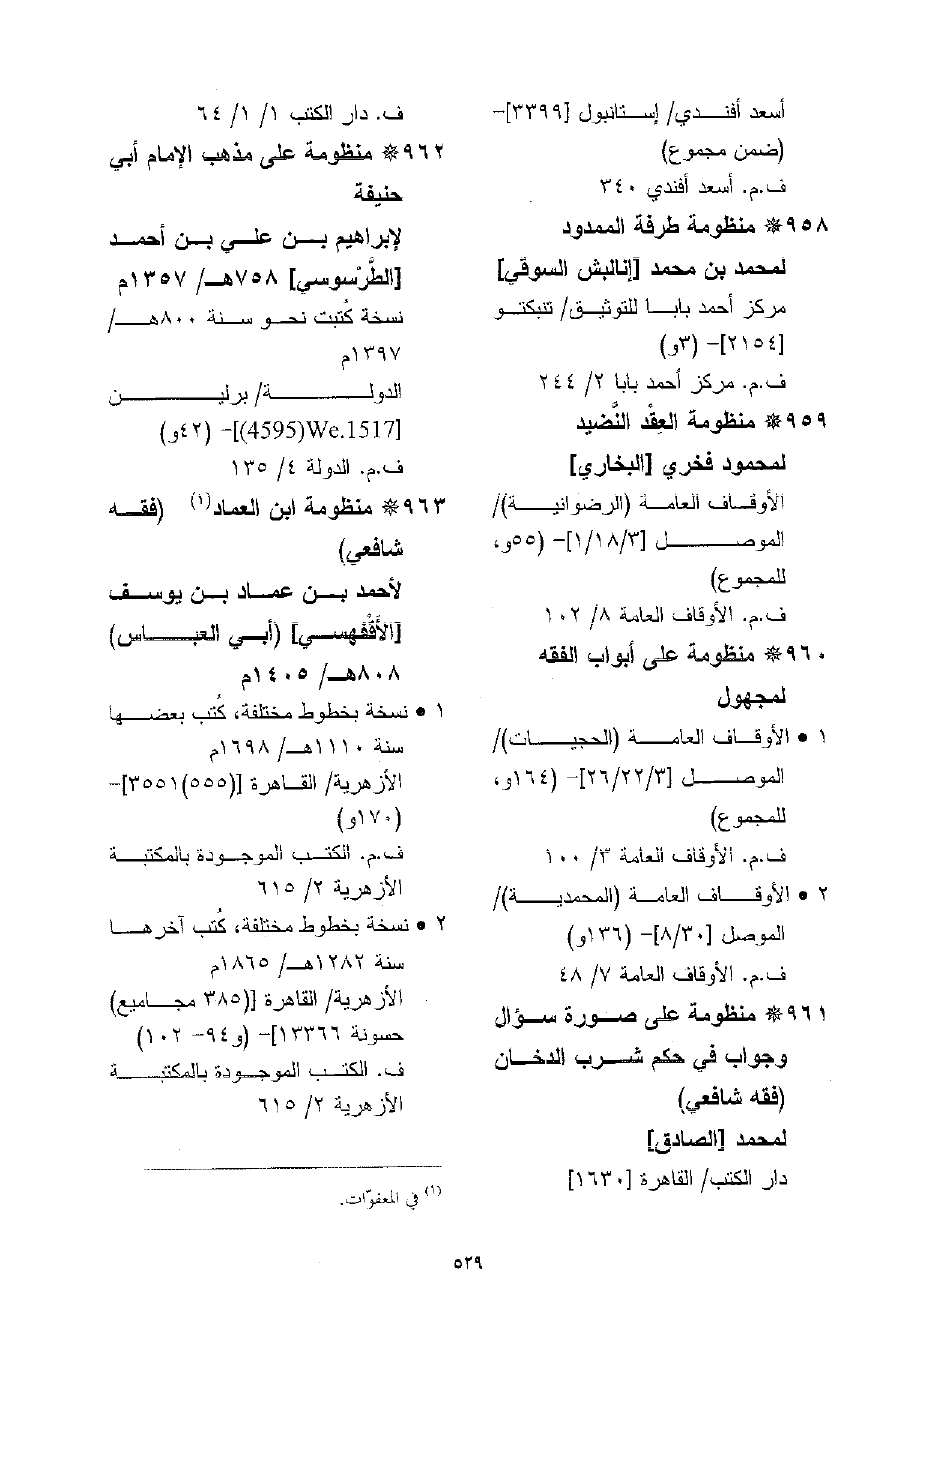 أسعد أفندي/ إستانبول [٣٣٩٩]-
(ضمن مجموع)
ف.م. أسعد أفندي ٣٤٠
٩٥٨* منظومة طرفة الممدود
لمحمد بن محمد [إنالبش السوقي]
مركز أحمد بابا للتوثيق/ تنبكتو
[٢١٥٤]- (٣و)
ف.م. مركز أحمد بابا ٢/ ٢٤٤
٩٥٩* منظومة العِقْد النَّضيد
لمحمود فخري [البخاري]
الأوقاف العامة (الرضوانية)/
الموصل [١/١٨/٣]- (٥٥و،
للمجموع)
ف.م. الأوقاف العامة ٨/ ١٠٢
٩٦٠* منظومة على أبواب الفقه
لمجهول
١ • الأوقاف العامة (الحجيات)/
الموصل [٢٦/٢٢/٣]- (١٦٤و،
للمجموع)
ف.م. الأوقاف العامة ٣/ ١٠٠
٢ • الأوقاف العامة (المحمدية)/
الموصل [٨/٣٠]- (١٣٦و)
ف.م. الأوقاف العامة ٧/ ٤٨
٩٦١* منظومة على صورة سؤال
وجواب في حكم شرب الدخان
(فقه شافعي)
لمحمد [الصادق]
دار الكتب/ القاهرة [١٦٣٠]
ف. دار الكتب ١/ ١/ ٦٤
٩٦٢* منظومة على مذهب الإمام أبي
حنيفة
لإبراهيم بن علي بن أحمد
[الطَّرْسوسي] ٧٥٨هـ/ ١٣٥٧م
نسخة كُتبت نحو سنة ٨٠٠هـ/
١٣٩٧م
الدولة/ برلين
[We.1517(4595)]- (٤٢و)
ف.م. الدولة ٤/ ١٣٥
٩٦٣* منظومة ابن العماد(١) (فقه
شافعي)
لأحمد بن عماد بن يوسف
[الأَقْفَهسي] (أبي العباس)
٨٠٨هـ/ ١٤٠٥م
١ • نسخة بخطوط مختلفة، كُتب بعضها
سنة ١١١٠هـ/ ١٦٩٨م
الأزهرية/ القاهرة [(٥٥٥)٣٥٥١]-
(١٧٠و)
ف.م. الكتب الموجودة بالمكتبة
الأزهرية ٢/ ٦١٥
٢ • نسخة بخطوط مختلفة، كُتب آخرها
سنة ١٢٨٢هـ/ ١٨٦٥م
الأزهرية/ القاهرة [(٣٨٥ مجاميع)
حسونة ١٣٣٦٦]- (و٩٤- ١٠٢)
ف. الكتب الموجودة بالمكتبة
الأزهرية ٢/ ٦١٥
(١) في المعفوّات.
٥٢٩